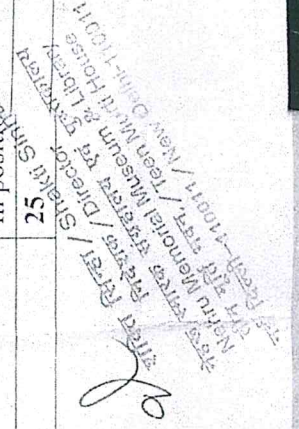 In posi
25
शक्ति सिन्हा / Shakti Sinha
निदेशक / Director
नेहरू स्मारक संग्रहालय एवं पुस्तकालय
Nehru Memorial Museum & Library
तीन मूर्ति भवन / Teen Murti House
नई दिल्ली-110011 / New Delhi-110011